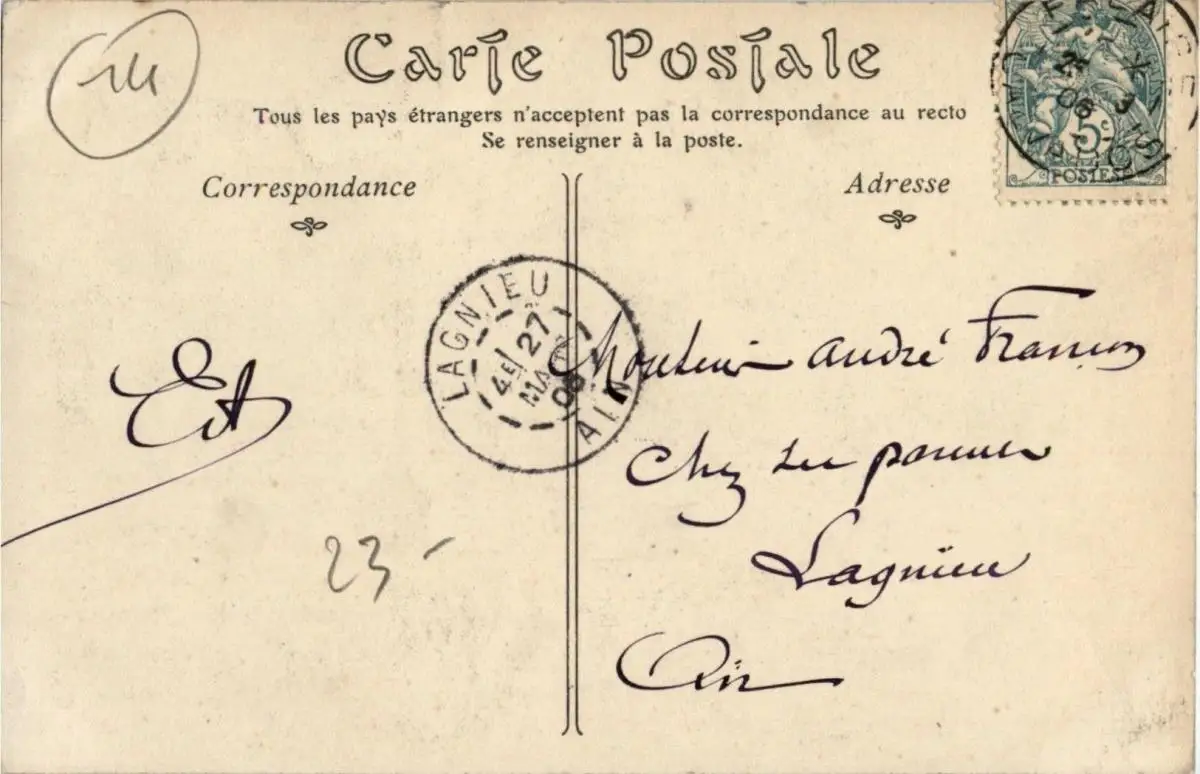 14
Carte Postale
Tous les pays étrangers n'acceptent pas la correspondance au recto
Se renseigner à la poste.
Correspondance
Adresse
5c
POSTES
FALAISE
CALVADOS
LAGNIEU
4E 27
MAI
AIN
Monsieur André
Chez ses parents
Lagnieu
Ain
23-